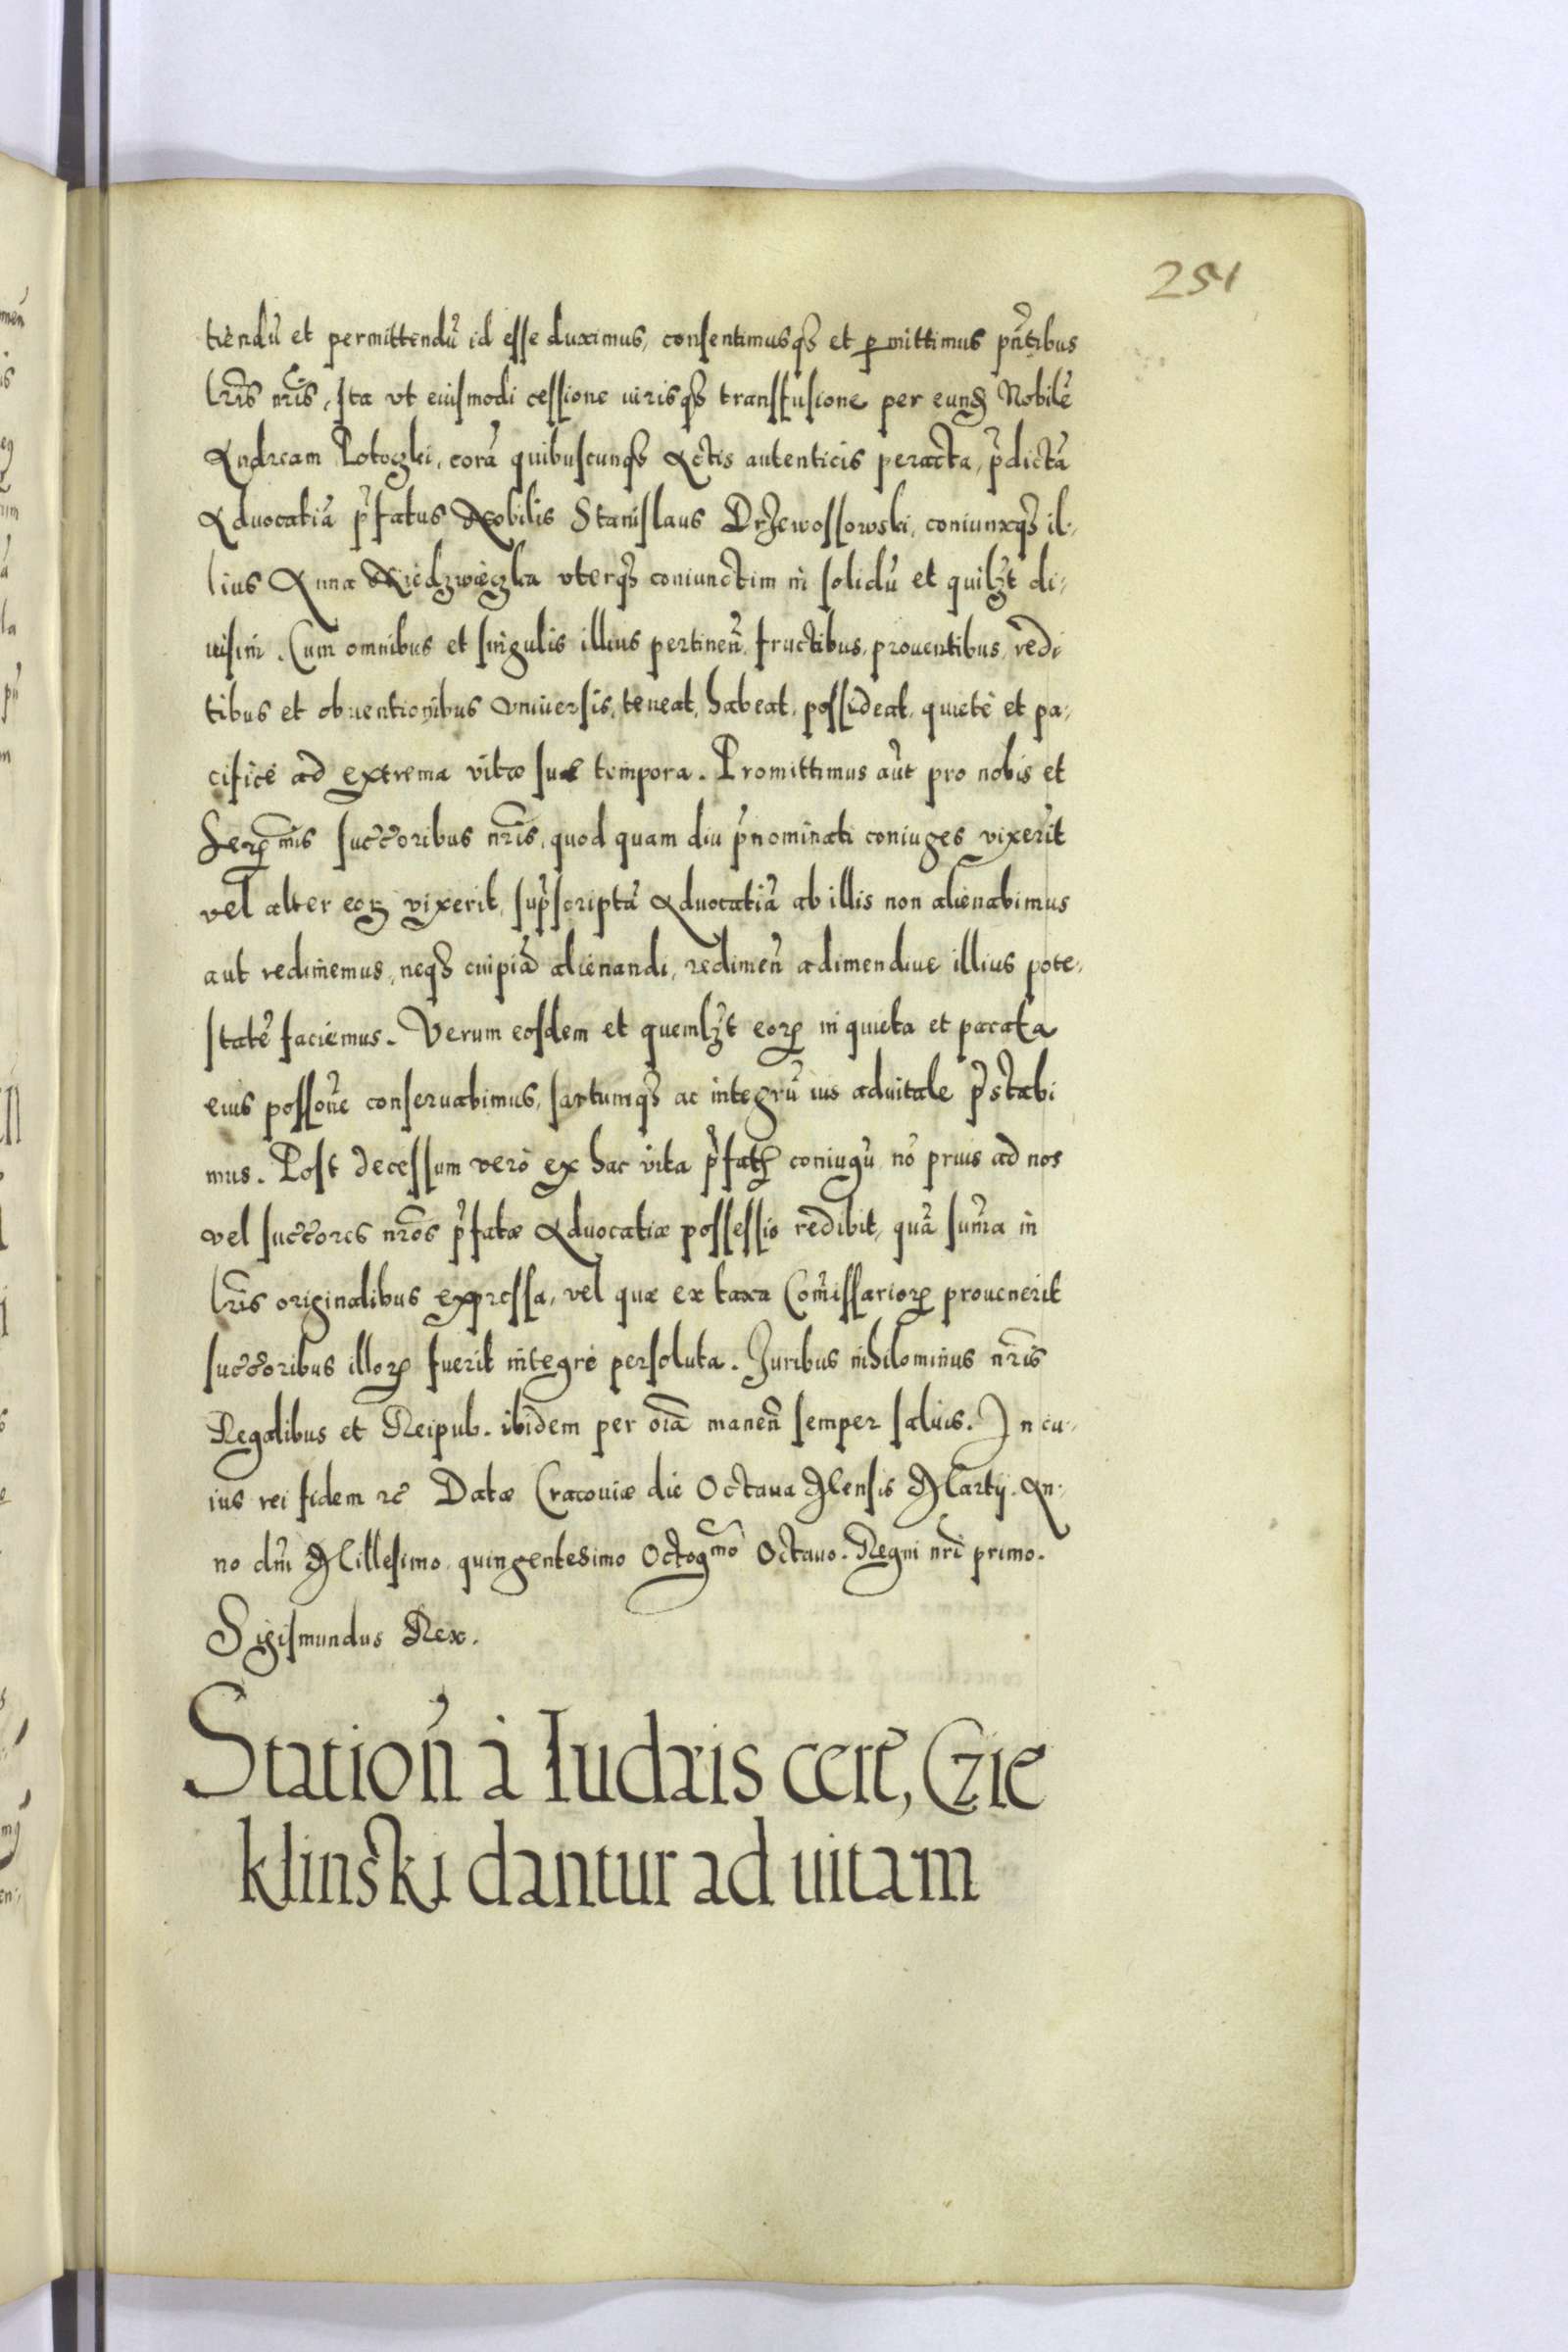 251
tiendũ et permittendũ id esse duximus, consentimusq3 et permittimus pñtibus
lr̃is nr̃is, Ita vt eiusmodi cessione iurisq3 transfusione per eund Nobilẽ
Andream Potoczki, corã quibuscunq3 Actis autenticis peracta, p̃dictã
Aduocatiã p̃fatus Nobilis Stanislaus Drzewossowski, coniunxq3 il-
lius Anna Niedzwieczka vterq3 coniunctim in solidũ et quilz̃t di-
uisim. Cum omnibus et singulis illius pertineñ. fructibus, prouentibus, redi
tibus et obuentionibus vniuersis, teneat, habeat, possideat, quietè et pa-
cificè ad extrema vitæ suæ tempora. Promittimus aũt pro nobis et
Sereñmis succ̃oribus nr̃is, quod quam diu p̃nominati coniuges vixerĩt
vel alter eorꝫ vixerit, sup̃scriptã Aduocatiã ab illis non alienabimus
aut redimemus, neq3 cuipiã alienandi, redimeñ adimendiue illius pote-
statẽ faciemus. Verum eosdem et quemlz̃t eorꝝ in quieta et pacata
eius posso͂ne conseruabimus, sartumq3 ac integrũ ius aduitale p̃stabi
mus. Post decessum verò ex hac vita p̃fatꝝ coniugũ nõ prius ad nos
vel succ̃ores nr̃os p̃fatæ Aduocatiæ possessio redibit, quã sum̃a in
lr̃is originalibus expressa, vel quæ ex taxa Com̃issariorꝝ prouenerit
succ̃oribus illorꝝ fuerit integrè persoluta. Iuribus nihilominus nr̃is
Regalibus et Reipub. ibidem per oĩa maneñ semper saluis. In cu-
ius rei fidem ꝛc̃ Datæ Cracouiæ die Octaua Mensis Martij. An-
no dñi Millesimo quingentesimo Octogmo Octauo. Regni nr̃i primo.
Sigismundus Rex.
Statioñ à Iudæis certẽ, Czie
klinski dantur ad uitam